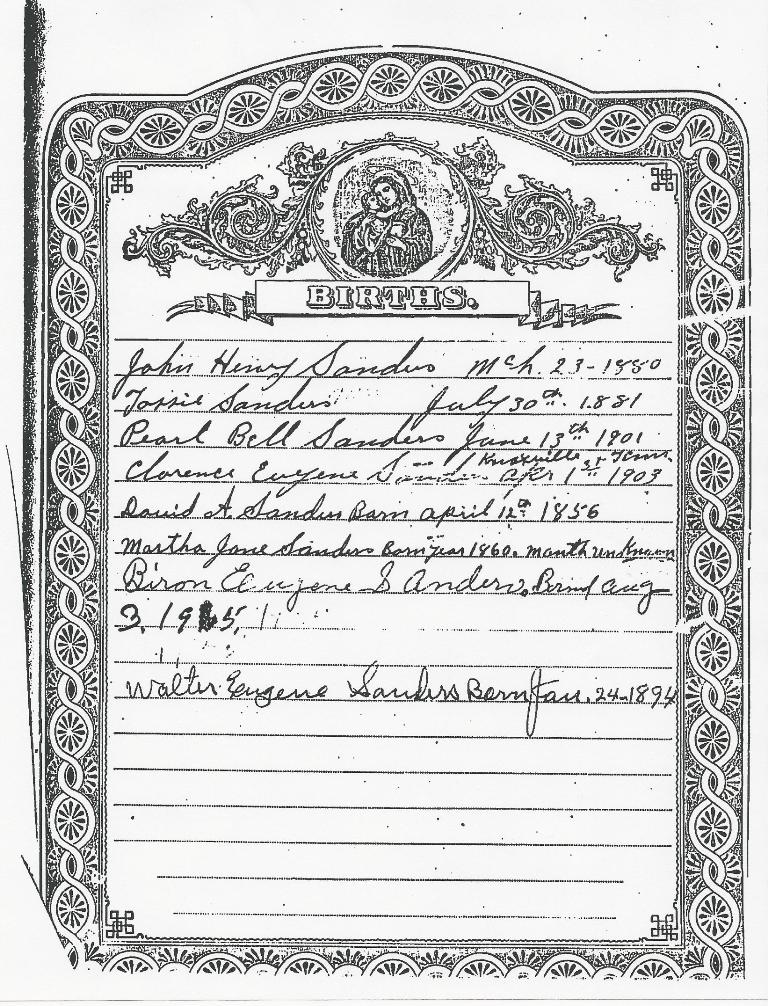 BIRTHS.
John Henry Sanders Mch. 23-1880
Tossie Sanders July 30th. 1881
Pearl Bell Sanders June 13th 1901
Knoxville Tenn.
Clarence Eugene Apr 1st 1903
David A. Sanders Born april 12th 1856
Martha Jane Sanders Born year 1860. month unknown
Biron Eugene S Anders, Bornd aug
3, 1915,
Walter Eugene Sanders Born Jan. 24-1894